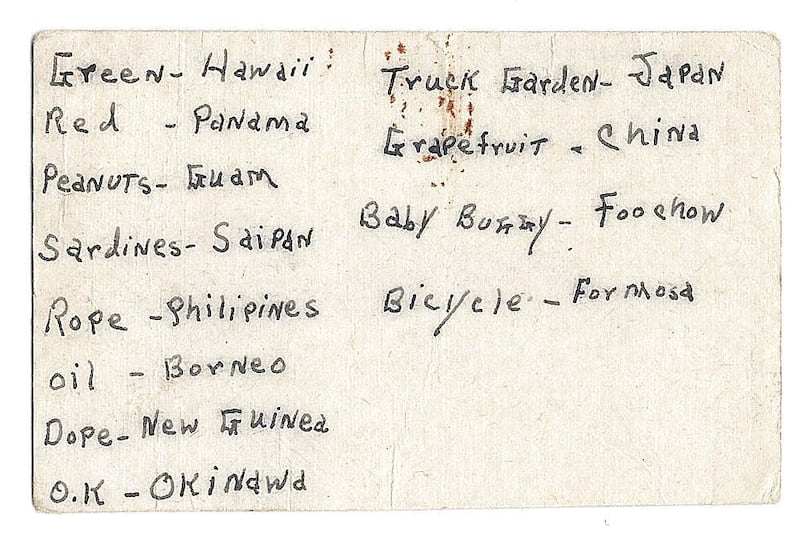 Green - Hawaii
Red - Panama
Peanuts - Guam
Sardines - Saipan
Rope - Philipines
Oil - Borneo
Dope - New Guinea
O.K - Okinawa
Truck Garden - Japan
Grapefruit - China
Baby Buggy - Foochow
Bicycle - Formosa